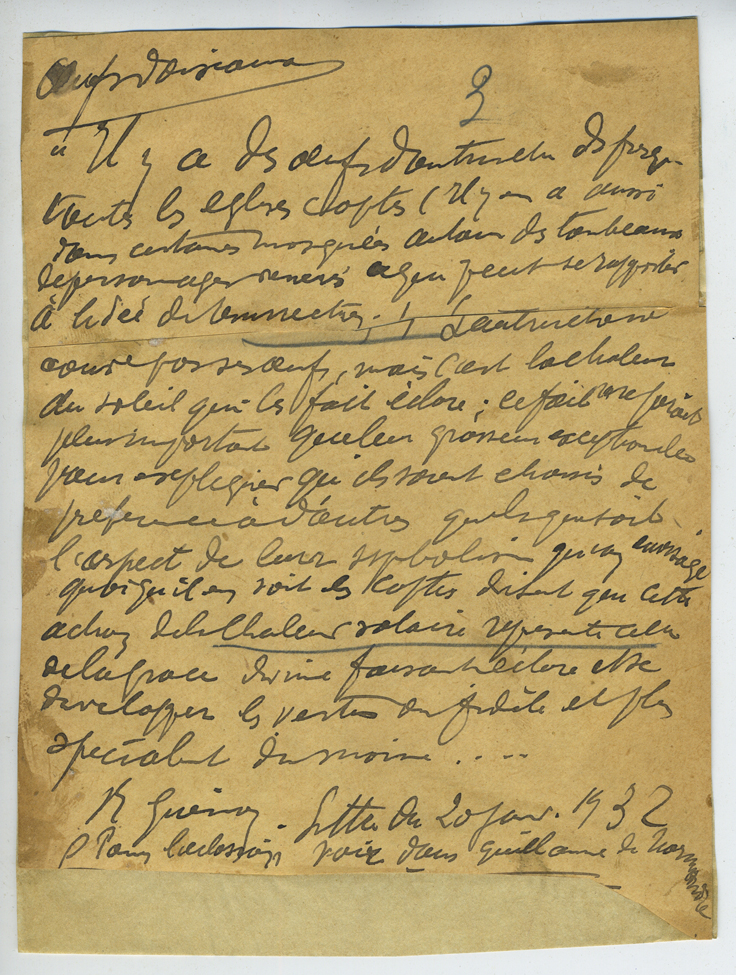 Œufs d'oiseaux
3
" Il y a des œufs d'autruche ds presq.
toutes les eglises coptes (Il y en a aussi
dans certaines mosquées autour des tombeaux
de personnages venerés ce qui peut se rapporter
à l'idée de resurrection. ) L'autruche
couve pas ses œufs, mais c'est la chaleur
du soleil qui les fait éclore ; ce fait me parait
plus important que leur grosseur exceptionelle
pour expliquer qu'ils soient choisis de
preference à d'autres quelque soit
l'aspect de leur symbolisme qu'on envisage
quoiqu'il en soit les Coptes disent que cette
action de la Chaleur solaire represente celle
de la grace divine faisant éclore et se
developper les vertus du fidèle et plus
specialent du moine . . . . .
R Guénon. Lettre du 20 janv. 1932
voir dans Guillaume de Normandie